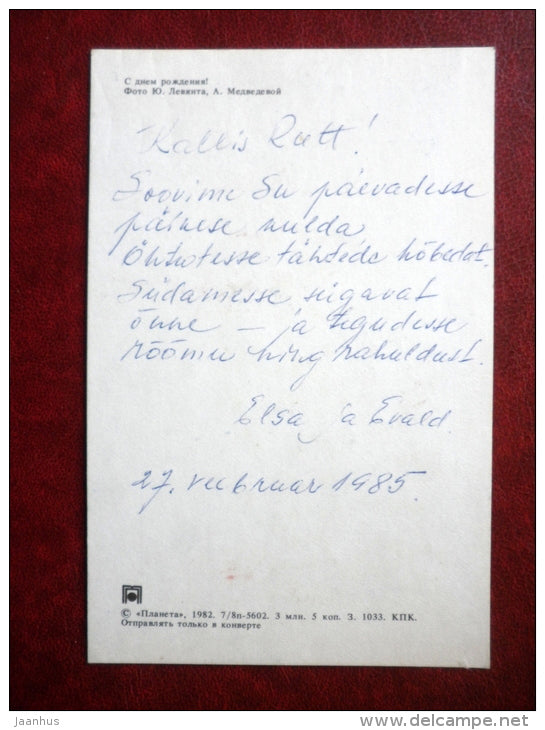 С днем рождения!
Фото Ю. Левянта, А. Медведевой
Kallis Rutt!
Soovime Su päevadesse
päikese kulda
Õhtutesse tähtede hõbedat.
Südamesse sügavat
õnne – ja tegudesse
rõõmu ning rahuldust.
Elsa ja Evald.
27. veebruar 1985.
© «Планета», 1982. 7/8п-5602. 3 млн. 5 коп. З. 1033. КПК.
Отправлять только в конверте
jaanhus
www.delcampe.net